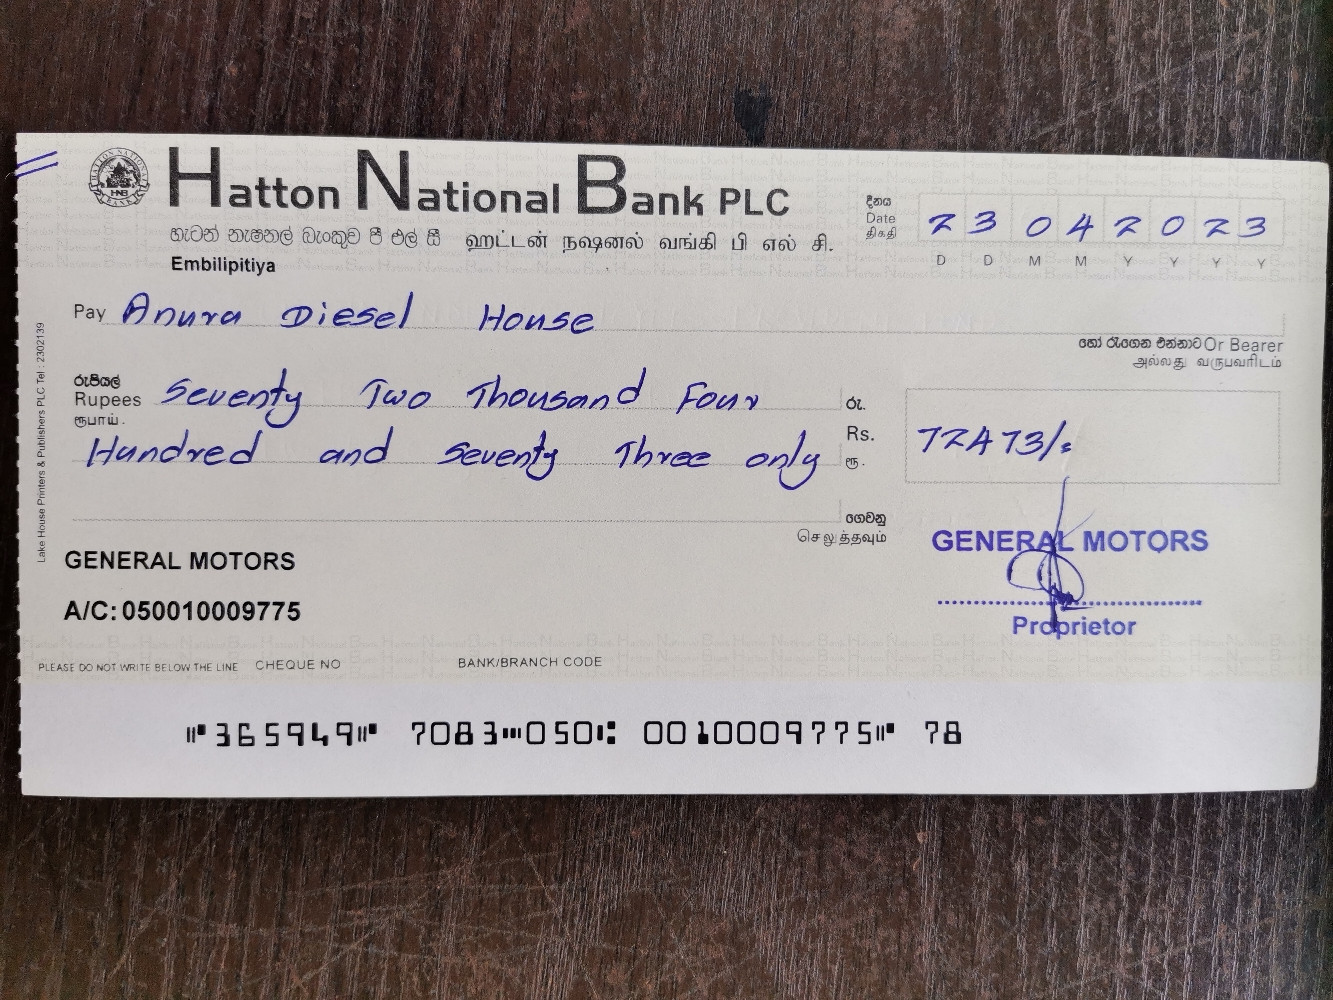 Hatton National Bank PLC
හැටන් නැෂනල් බැංකුව පී එල් සී ஹட்டன் நஷனல் வங்கி பி எல் சி.
Embilipitiya
දිනය
Date
திகதி
2 3 0 4 2 0 2 3
D D M M Y Y Y Y
Pay Anura Diesel House
හෝ රැගෙන එන්නාට Or Bearer
அல்லது வருபவரிடம்
රුපියල්
Rupees
ரூபாய்.
Seventy Two Thousand Four
Hundred and Seventy Three only
රු.
Rs.
ரூ.
72473/=
ගෙවනු
செலுத்தவும்
GENERAL MOTORS
A/C: 050010009775
GENERAL MOTORS
Proprietor
Lake House Printers & Publishers PLC Tel : 2302139
PLEASE DO NOT WRITE BELOW THE LINE CHEQUE NO BANK/BRANCH CODE
⑈365949⑈ 7083⑉050⑆ 0010009775⑈ 78